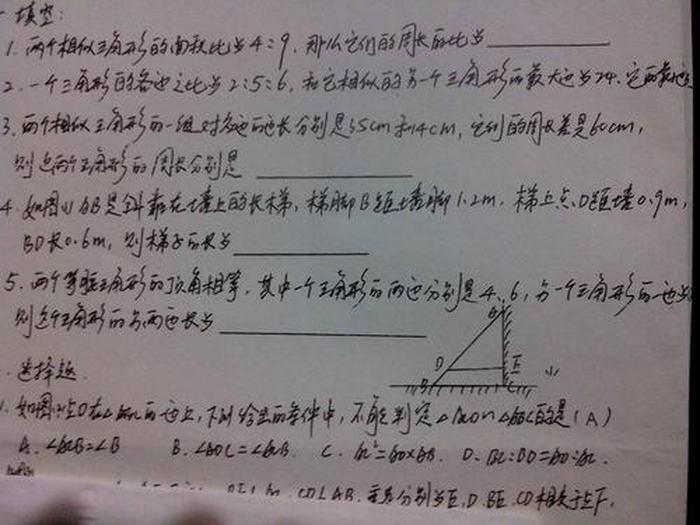 一填空:
1. 两个相似三角形的面积比为4:9,那么它们的周长的比为
2. 一个三角形的各边之比为2:5:6,和它相似的另一个三角形的最大边为24,它的最
3. 两个相似三角形的一组对应边的边长分别是35cm和14cm,它们的周长差是60cm,
则这两个三角形的周长分别是
4. 如图(1)AB是斜靠在墙上的长梯,梯脚B距墙脚1.2m,梯上点D距墙0.9m,
BD长0.6m,则梯子的长为
5. 两个等腰三角形的顶角相等,其中一个三角形的两边分别是4,6,另一个三角形的一边
则这个三角形的另两边长为
D E
B C
选择题
1. 如图 点D在△ABC的边上,下列给出的条件中,不能判定 的是(A)
A. ∠ACB=∠B B. ∠ADC=∠ACB C. AC²=AD×AB D.
CD⊥AB, 垂足分别为E,D,BE,CD相交于点F,